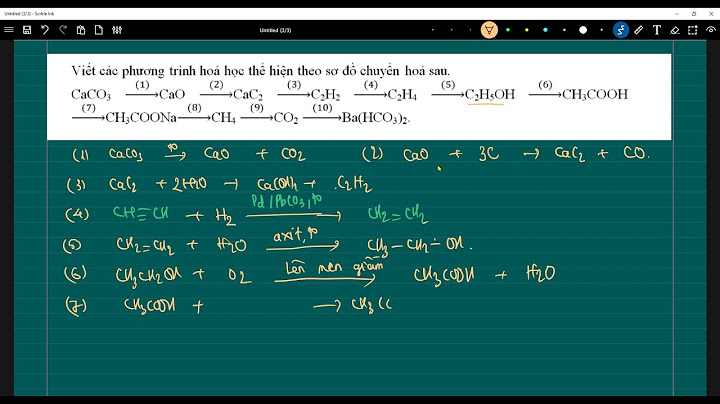 Untitled (3/3) - Scrble Ink
Untitled (3/3)
Viết các phương trình hoá học thể hiện theo sơ đồ chuyển hoá sau.
CaCO3 —(1)→ CaO —(2)→ CaC2 —(3)→ C2H2 —(4)→ C2H4 —(5)→ C2H5OH —(6)→ CH3COOH
—(7)→ CH3COONa —(8)→ CH4 —(9)→ CO2 —(10)→ Ba(HCO3)2.
(1) CaCO3 —t°→ CaO + CO2 (2) CaO + 3C → CaC2 + CO.
(3) CaC2 + 2H2O → Ca(OH)2 + C2H2
(4) CH≡CH + H2 —Pd/PbCO3, t°→ CH2=CH2
(5) CH2=CH2 + H2O —axit, t°→ CH3-CH2-OH.
(6) CH3CH2OH + O2 —Lên men giấm→ CH3COOH + H2O
(7) CH3COOH + → CH3CC